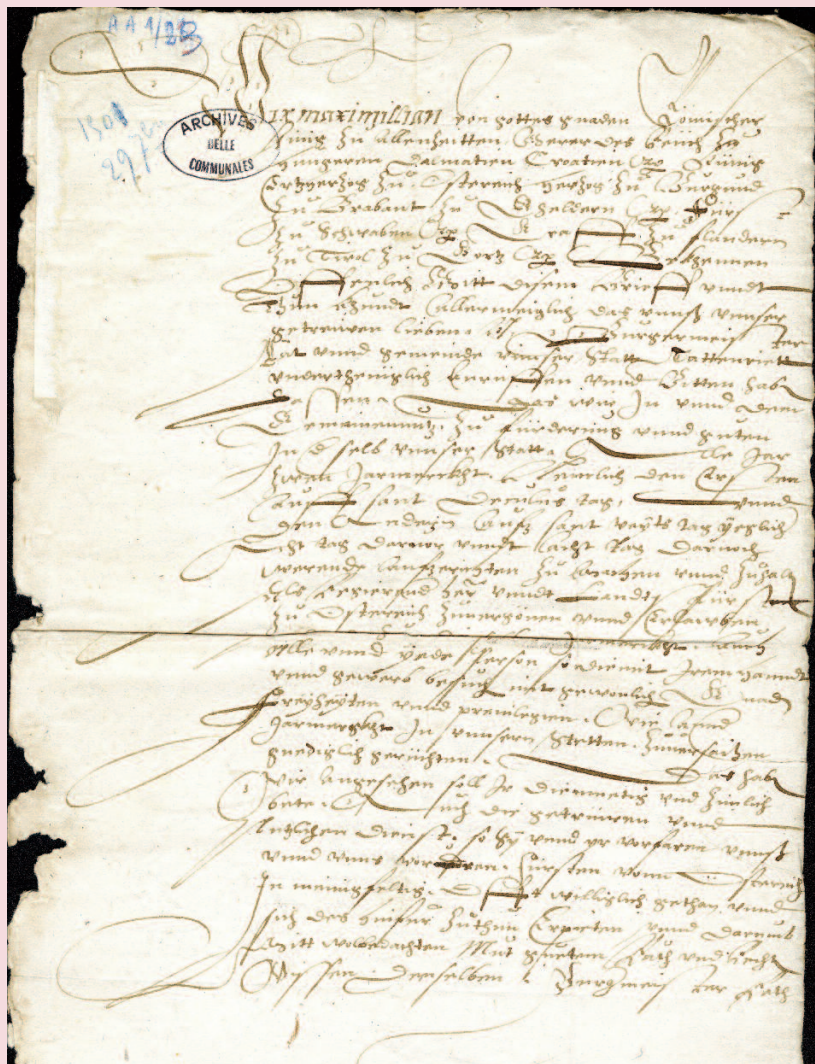 AA 1/23
1501
29/7
ARCHIVES
DELLE
COMMUNALES
Wir maximilian von gottes gnaden Römischer
Künig Zu allenzeitten Merer des Reich Zu
Hungeren Dalmatien Croatien Künig
Ertzherzog Zu Osterreich Hertzog Zu Burgund
Zu Brabant Zu Gheldern
Zu Schwaben Zu Flandern
Zu Tirol Zu Görtz Bekhennen
Offenlich Mitt disem Brieff vnndt
Thun khundt Allermeiglich das vnnß vnnser
getreüwen lieben Burgermeister
Rat vnnd gemeinde vnnser Statt Tattenriett
vnderthenigklich anrueffen vnnd Bitten hab
lassen das wir In vnnd dem
Gemainennutz Zu fürderung vnnd guten
In selb vnnser Statt Alle Jar
zween Jarmerckht Nemlich den Ersten
Auff sant Deculus tag vnnd
den Andern Auff sant veyts tag yeglich
Acht tag daruor vnndt Acht tag darnoch
werende Auffzerichten Zu machen vnnd Zuhal
Als Regierend her vnndt Landt Fürst
Zu Osterreich Zuuergönen vnnd Erlauben
Alle vnnd yede Person so die mit Irem hanndt
vnnd gewerb besuch mit gewonlich Gnad
Freyheyten vnnd preuilegien Wie Annd
Jarmerckht In vnnsern Stetten Zuuersehen
gnediglich geruchten Das hab
Wir Angesehen soll Ir diemuetig vnd Zimlich
bete Auch die getreuwen vnnd
Nutzlichen dienst so sy vnnd yr vorfaren vnnß
vnnd vnns vordren Fürsten vonn Osterreich
In mainigfeltig Offt williglich gethan vnnd
sich des hinfür Zuthun Erpieten vnnd darumb
Mitt wolbedachten Mut guetem Rath vnd Recht
Wyssen denselben Burgermeister Rath